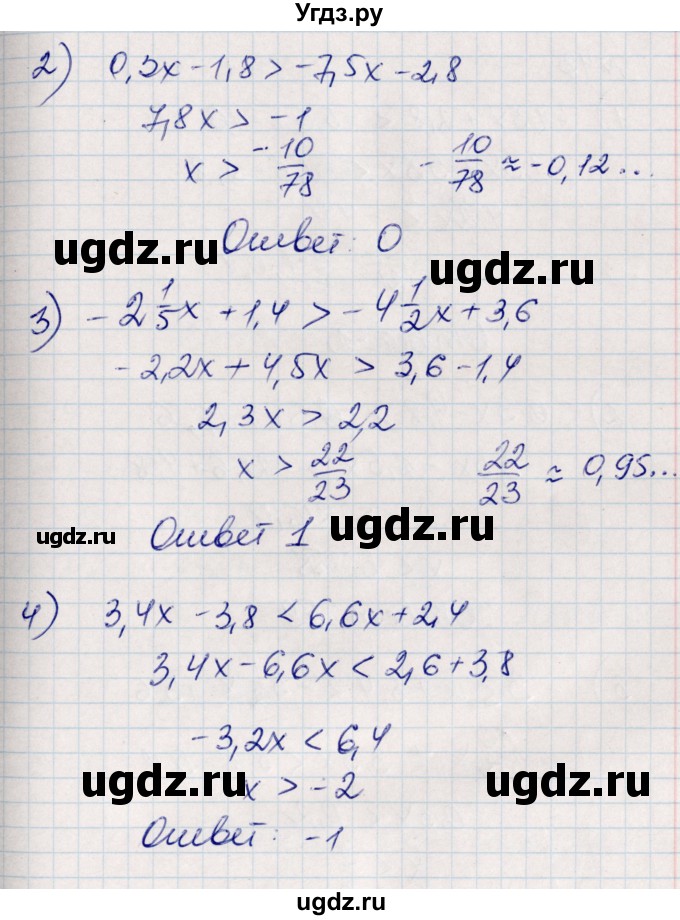 Угдз.ру
2) 0,3x - 1,8 > -7,5x - 2,8
7,8x > -1
x > -10/78   -10/78 ≈ -0,12...
Ответ: 0
ugdz.ru
ugdz.ru
3) -2 1/5x + 1,4 > -4 1/2x + 3,6
-2,2x + 4,5x > 3,6 - 1,4
2,3x > 2,2
x > 22/23   22/23 ≈ 0,95...
ugdz.ru
ugdz.ru
Ответ 1
4) 3,4x - 3,8 < 6,6x + 2,4
3,4x - 6,6x < 2,6 + 3,8
-3,2x < 6,4
ugdz.ru
ugdz.ru
x > -2
Ответ: -1
ugdz.ru